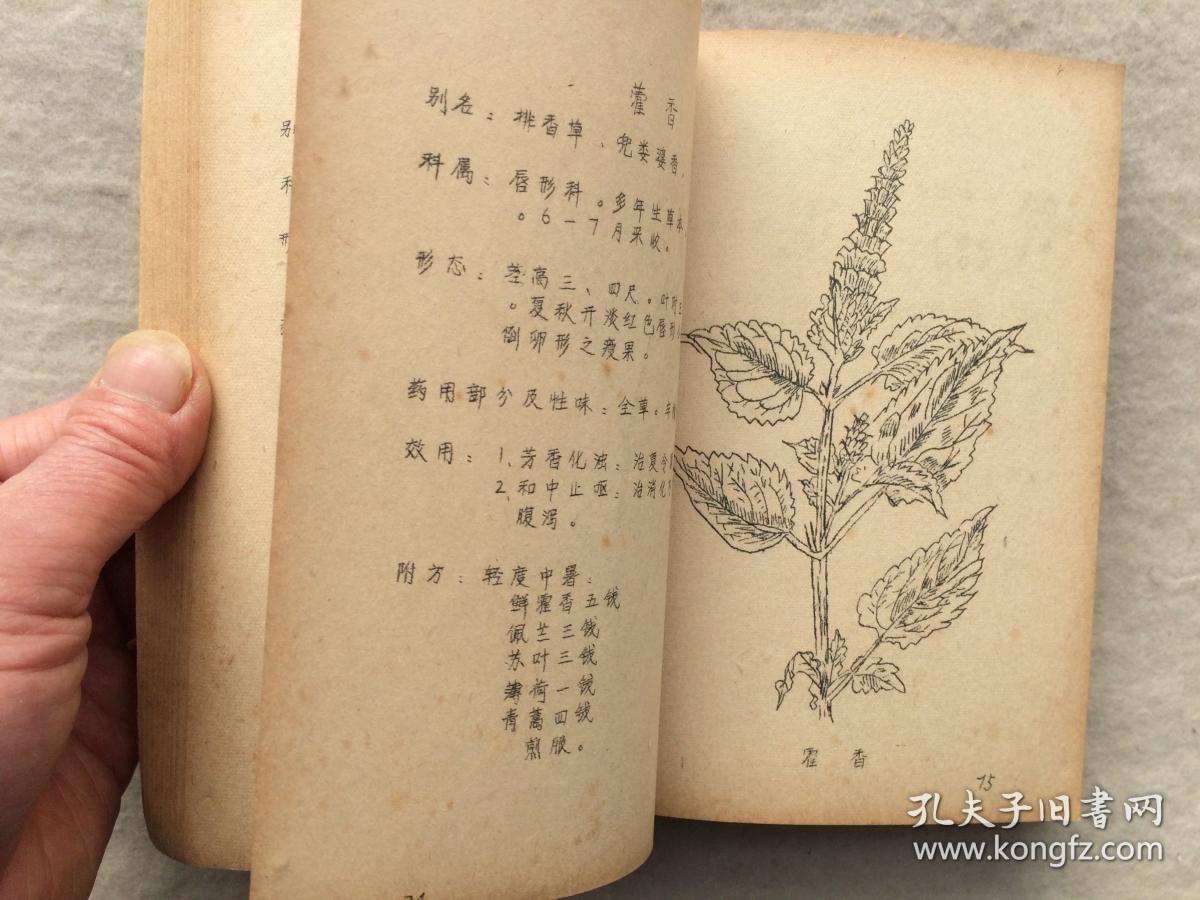 藿香
别名：排香草、兜娄婆香、
科属：唇形科。多年生草本
。6－7月采收。
形态：茎高三、四尺。叶
。夏秋开淡红色唇形
倒卵形之瘦果。
药用部分及性味：全草。辛
效用：1、芳香化浊：治夏令
2、和中止呕：治消化
腹泻。
附方：轻度中暑：
鲜藿香五钱
佩兰三钱
苏叶三钱
薄荷一钱
青蒿四钱
煎服。
霍香
75
孔夫子旧书网
www.kongfz.com